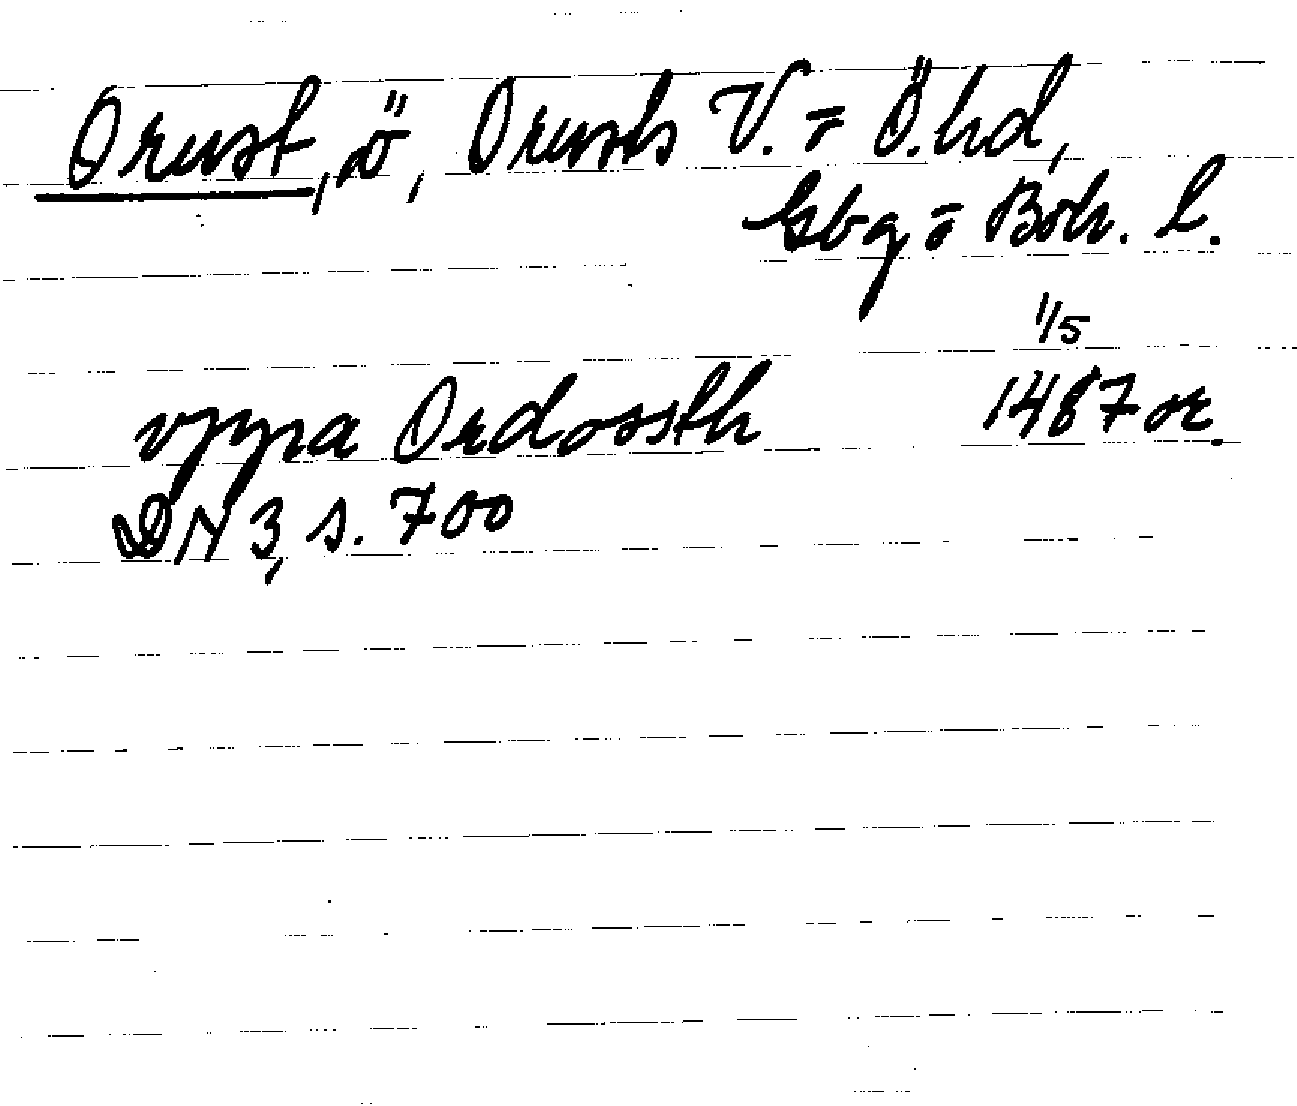 Orust, ö, Orusts V. o Ö. hd,
Gbg o Boh. l.
1/5
vppa Ordossth 1487 or.
DN 3, s. 700